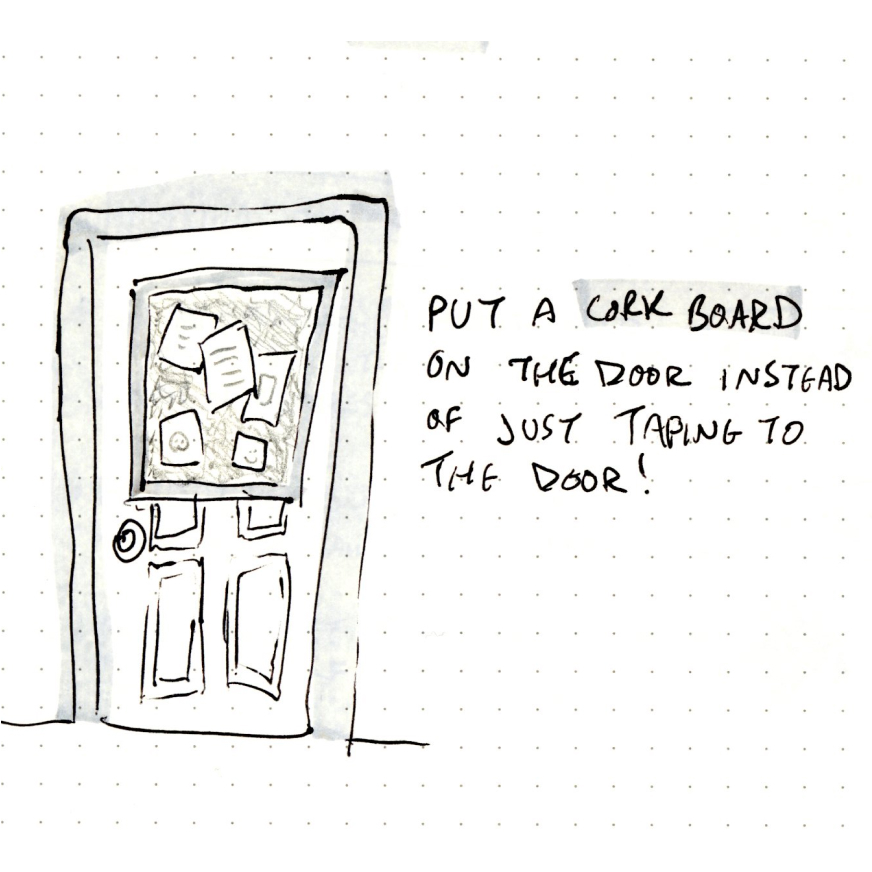 PUT A CORK BOARD
ON THE DOOR INSTEAD
OF JUST TAPING TO
THE DOOR!